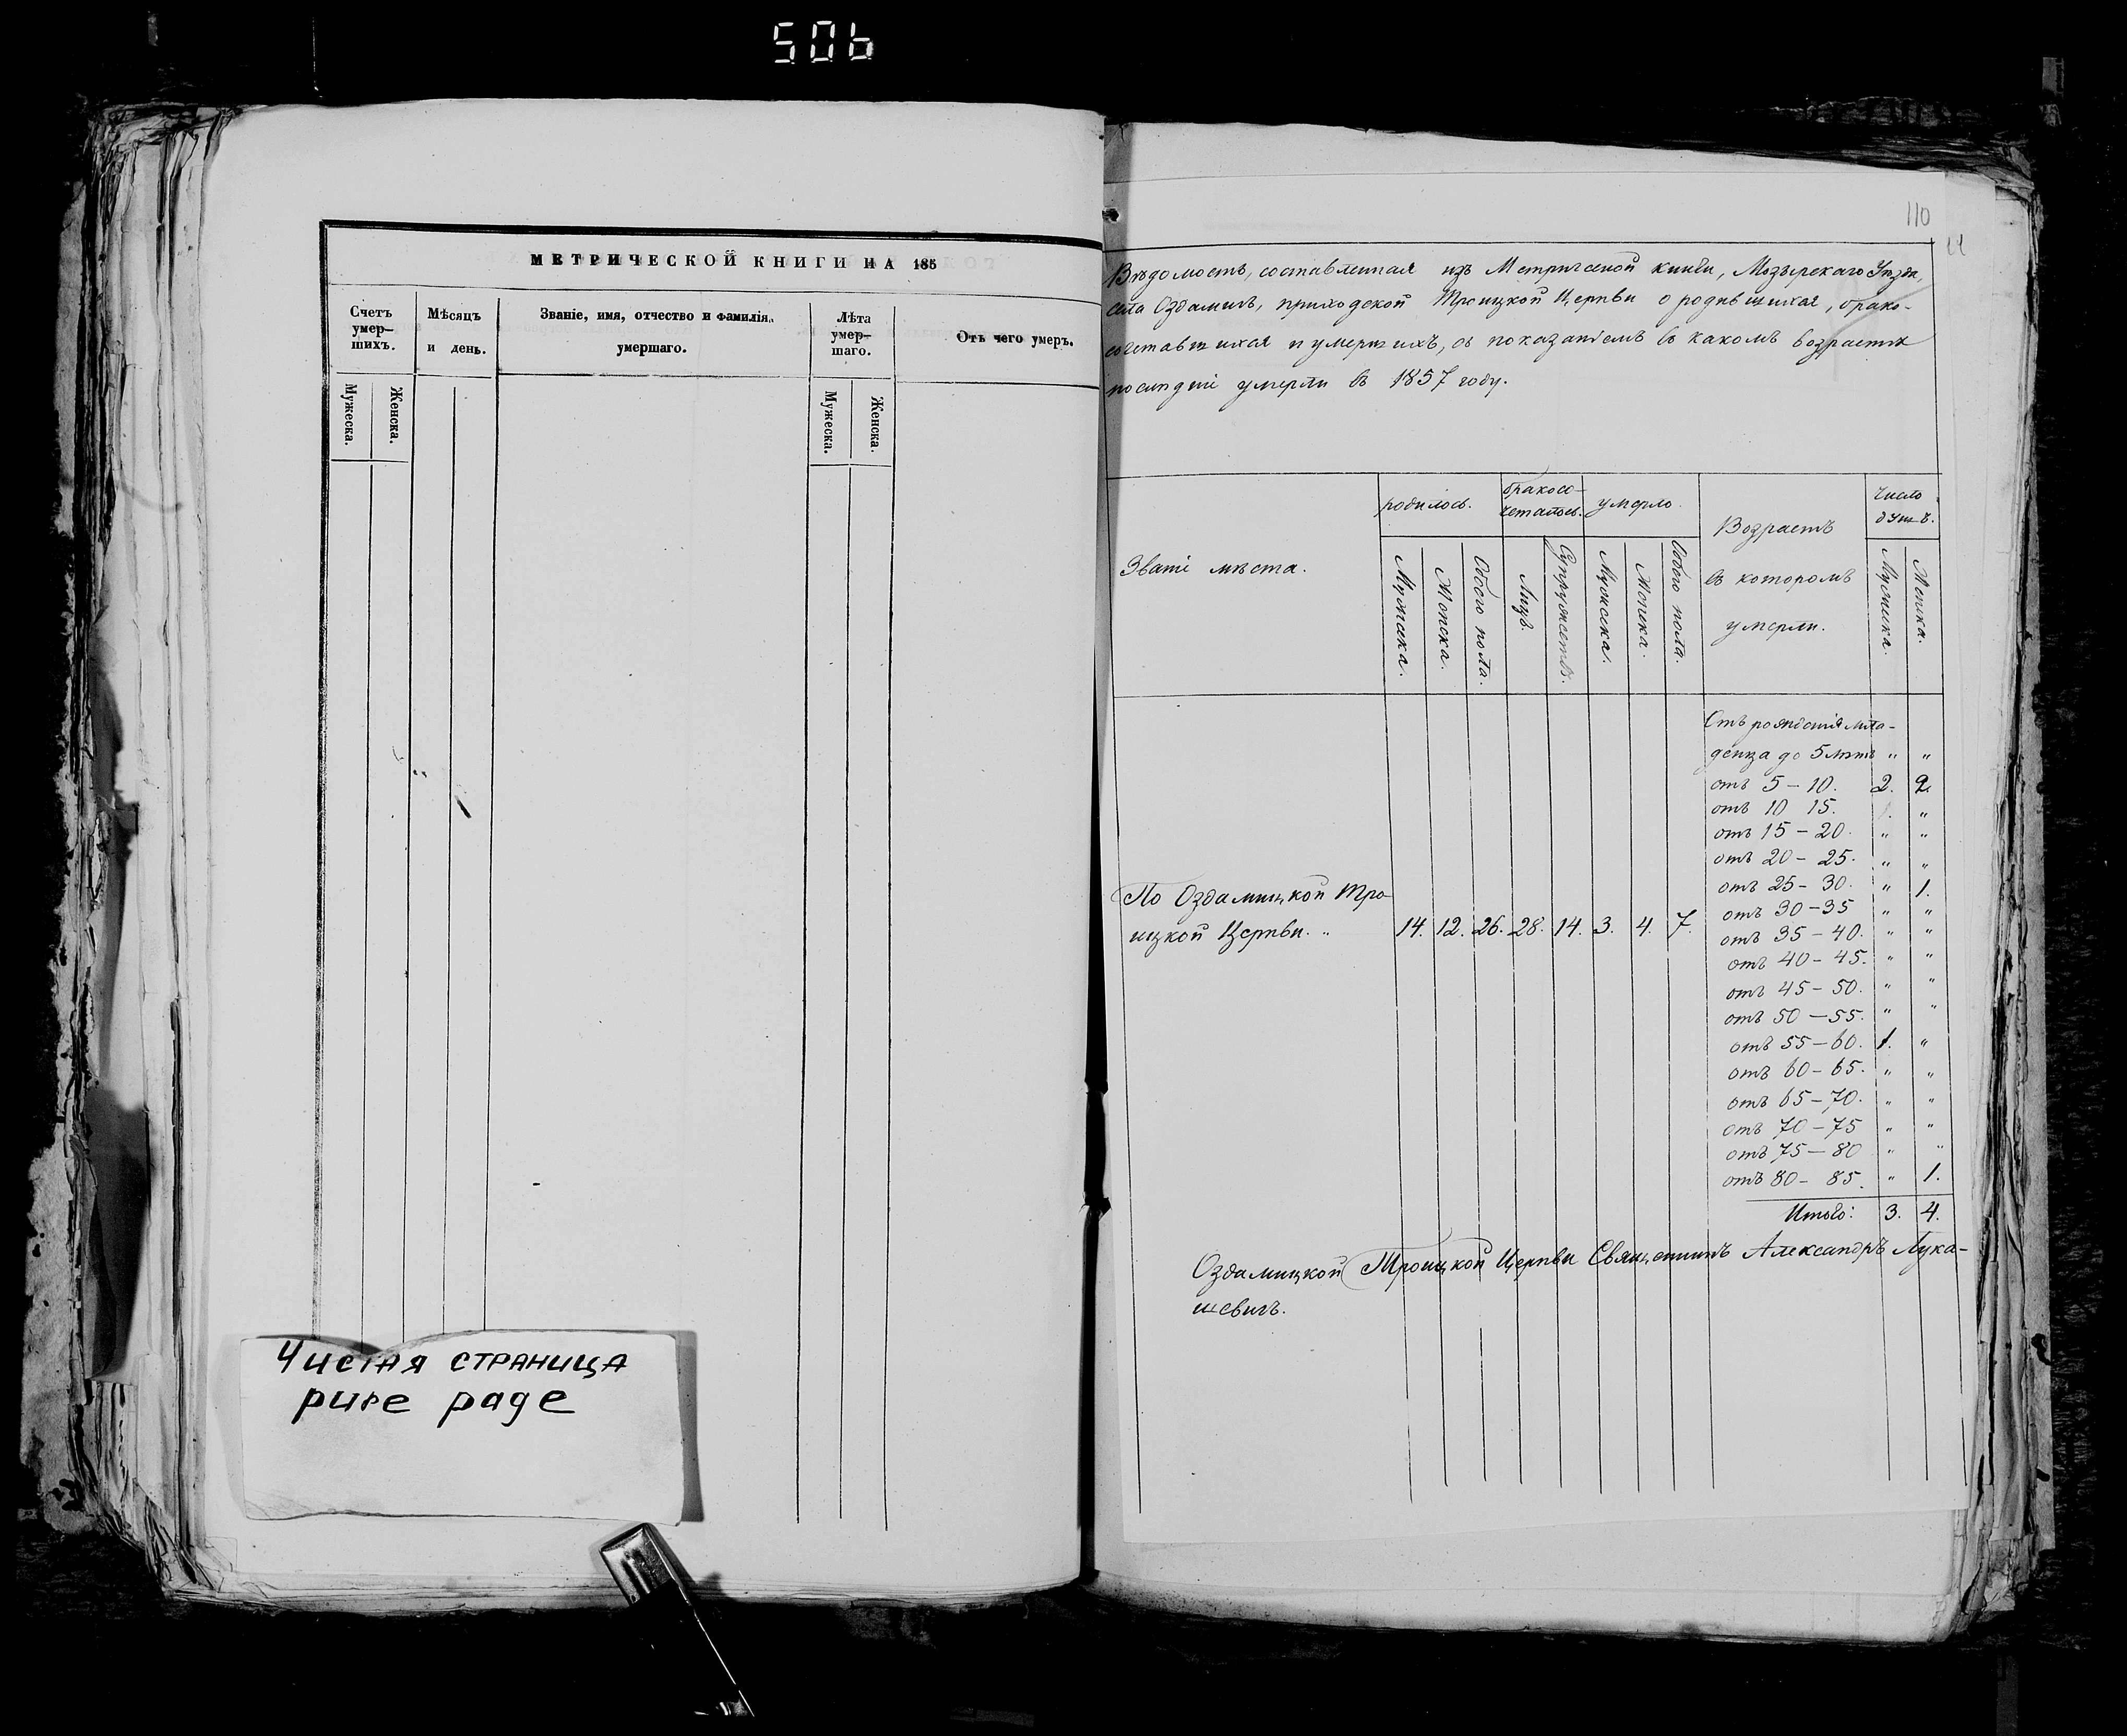 506
МЕТРИЧЕСКОЙ КНИГИ НА 185
Счетъ умер–шихъ.
Мѣсяцъ и день.
Званіе, имя, отчество и фамилія, умершаго.
Лѣта умер–шаго.
Отъ чего умеръ.
Мужеска.
Женска.
Мужеска.
Женска.
Чистая страница
pure page
110
Вѣдомость, составленная изъ Метрической книги, Мозырскаго Уѣзда,
села Оздамичъ, приходской Троицкой Церкви о родившихся, брако-
сочетавшихся и умершихъ, съ показаніемъ въ какомъ возрастѣ
послѣдніе умерли въ 1857 году.
Званіе мѣста.
родилось.
бракосо-
четалось.
умерло.
Возрастъ
въ которомъ
умерли.
Число
душъ.
Мужеска.
Женска.
Обоего пола.
Лицъ.
Супружествъ.
Мужеска.
Женска.
Обоего пола.
Мужеска.
Женска.
Отъ рожденія мла-
денца до 5 лѣтъ " "
отъ 5 – 10. 2. 2.
отъ 10 15. "
отъ 15 – 20. " "
отъ 20 – 25. " "
отъ 25 – 30. " 1.
отъ 30 – 35 " "
отъ 35 – 40. " "
отъ 40 – 45. " "
отъ 45 – 50. " "
отъ 50 – 55. " "
отъ 55 – 60. 1. "
отъ 60 – 65. " "
отъ 65 – 70. " "
отъ 70 – 75 " "
отъ 75 – 80 " "
отъ 80 – 85. " 1.
Итого: 3. 4.
По Оздамицкой Тро-
ицкой Церкви. " 14. 12. 26. 28. 14. 3. 4. 7.
Оздамицкой Троицкой Церкви Священникъ Александръ Лука-
шевичъ.